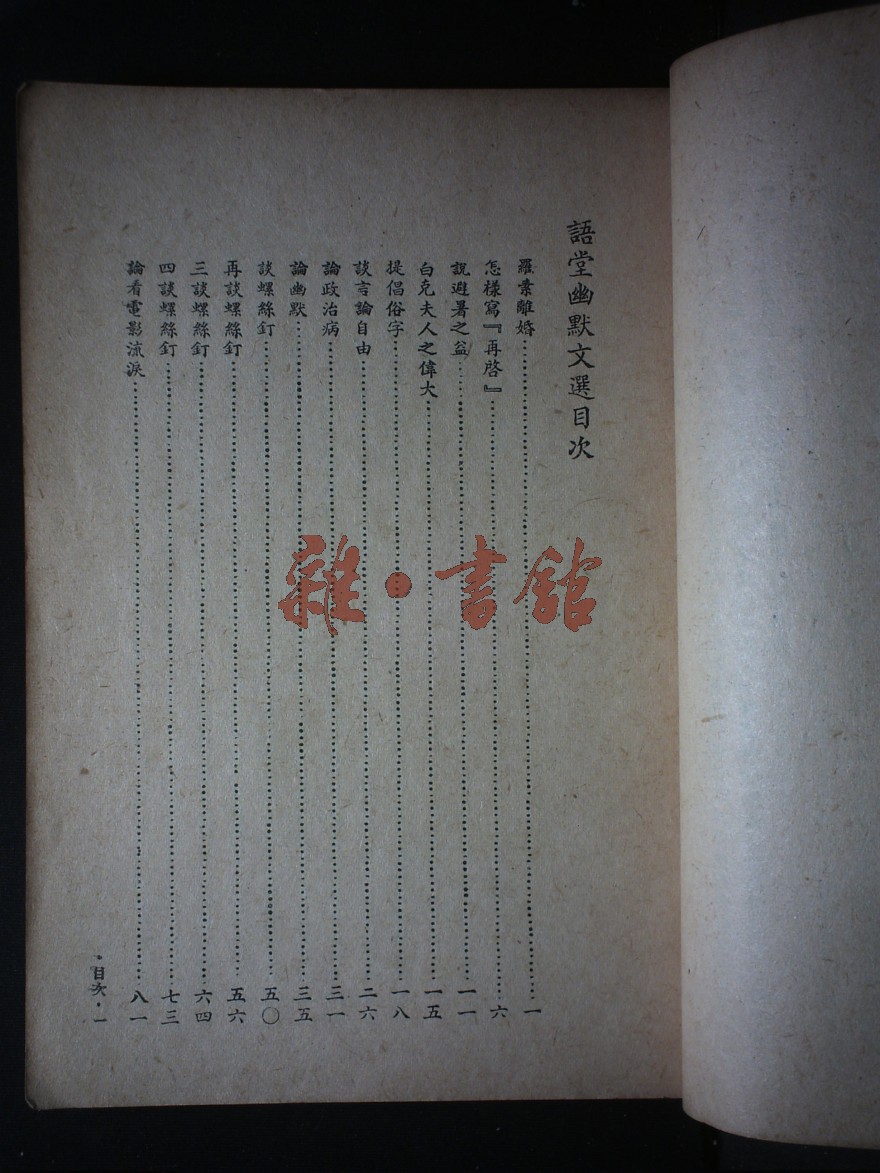 語堂幽默文選目次
羅素離婚……一
怎樣寫『再啓』……六
說避暑之益……一一
白克夫人之偉大……一五
提倡俗字……一八
談言論自由……二六
論政治病……三一
論幽默……三五
談螺絲釘……五〇
再談螺絲釘……五六
三談螺絲釘……六四
四談螺絲釘……七三
論看電影流淚……八一
•目次•一
雜•書館